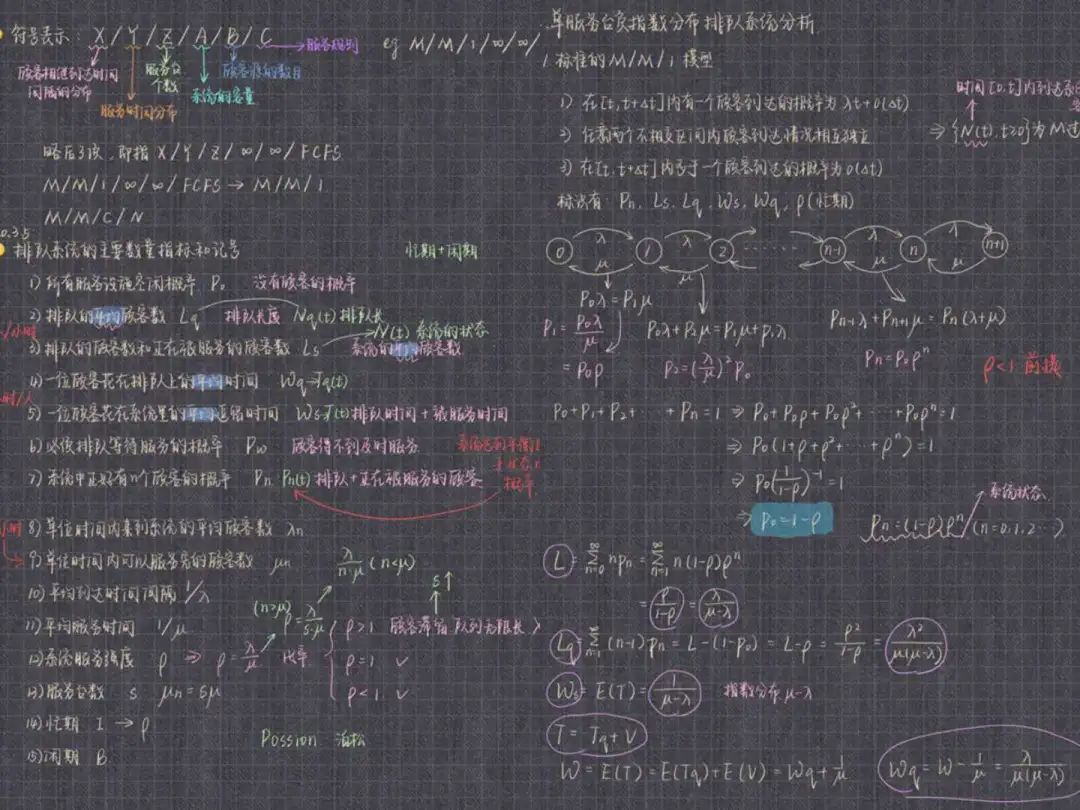 符号表示: X/Y/Z/A/B/C → 服务规则 eg M/M/1/∞/∞/
顾客相继到达时间间隔的分布
服务时间分布
服务台个数
系统的容量
顾客源的数目
略后3项, 即指 X/Y/Z/∞/∞/FCFS
M/M/1/∞/∞/FCFS → M/M/1
M/M/C/N
排队系统的主要数量指标和记号 忙期+闲期
1) 所有服务设施空闲概率 P₀ 没有顾客的概率
2) 排队的平均顾客数 Lq 排队长度 Nq(t) 排队长
N(t) 系统的状态
3) 排队的顾客数和正在被服务的顾客数 Ls 系统的平均顾客数
4) 一位顾客花在排队上的平均时间 Wq → Tq(t)
5) 一位顾客花在系统里的平均逗留时间 Ws → T(t) 排队时间+被服务时间
6) 必须排队等待服务的概率 Pw 顾客得不到及时服务
7) 系统中正好有n个顾客的概率 Pn Pn(t) 排队+正在被服务的顾客
概率
8) 单位时间内来到系统的平均顾客数 λn
9) 单位时间内可以服务完的顾客数 μn λ/n·μ (n<μ)
10) 平均到达时间间隔 1/λ
11) 平均服务时间 1/μ (n≥μ) ρ=λ/s·μ
12) 系统服务强度 ρ ⇒ ρ=λ/μ 比率
s↑
ρ>1 顾客滞留 队列无限长
ρ=1 ∨
ρ<1 ∨
13) 服务台数 s μn=sμ
14) 忙期 I → ρ
15) 闲期 B
Possion 泊松
单服务台负指数分布排队系统分析
1. 标准的M/M/1模型
1) 在[t, t+Δt]内有一个顾客到达的概率为 λt+o(Δt)
2) 任意两个不相交区间内顾客到达情况相互独立
3) 在[t, t+Δt]内多于一个顾客到达的概率为 o(Δt)
时间[0,t]内到达系
⇒ {N(t), t≥0}为M过
标识有: Pn, Ls, Lq, Ws, Wq, ρ(忙期)
0 λ μ 1 λ μ 2 ······ n-1 λ μ n λ μ n+1
P₀λ=P₁μ
P₁=P₀λ/μ
=P₀ρ
P₀λ+P₂μ=P₁μ+P₁λ
P₂=(λ/μ)²P₀
Pn-1λ+Pn+1μ=Pn(λ+μ)
Pn=P₀ρⁿ
ρ<1 前提
P₀+P₁+P₂+ ··· +Pn=1 ⇒ P₀+P₀ρ+P₀ρ²+ ··· +P₀ρⁿ=1
⇒ P₀(1+ρ+ρ²+ ··· +ρⁿ)=1
⇒ P₀(1/1-ρ)⁻¹=1
⇒ P₀=1-ρ
系统状态
Pn=(1-ρ)ρⁿ (n=0,1,2···)
L=∑ₙ₌₀^∞ nPn=∑ₙ₌₁^∞ n(1-ρ)ρⁿ
=ρ/1-ρ=λ/μ-λ
Lq=∑ₙ₌₁^∞ (n-1)Pn=L-(1-P₀)=L-ρ=ρ²/1-ρ=λ²/μ(μ-λ)
Ws=E(T)=1/μ-λ 指数分布 μ-λ
T=Tq+V
W=E(T)=E(Tq)+E(V)=Wq+1/μ
Wq=W-1/μ=λ/μ(μ-λ)